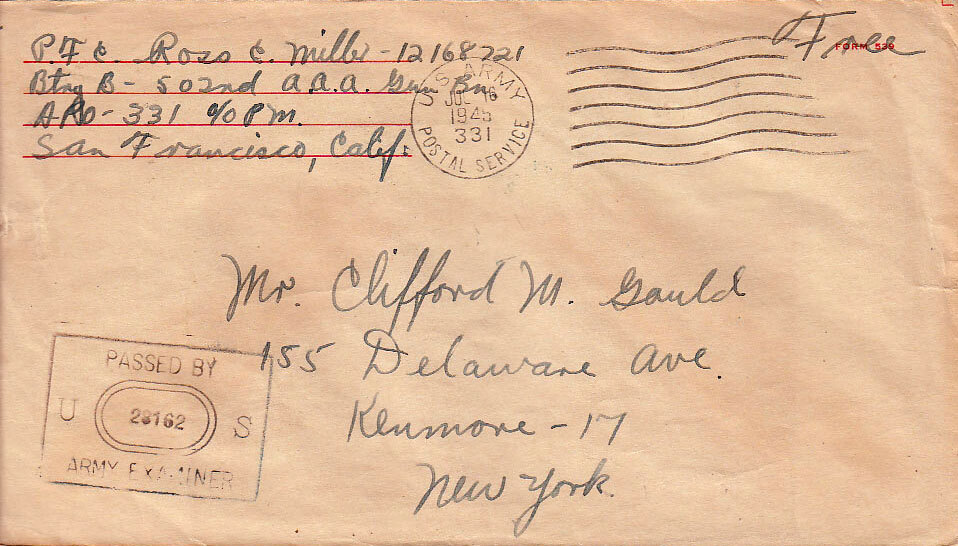 P.F.C. Ross C. Miller - 12168221
Btry B - 502nd A.A.A. Gun Bn.
APO - 331 c/o P.M.
San Francisco, Calif.
Free
FORM 539
U.S. ARMY
JUL 16
1945
331
POSTAL SERVICE
Mr. Clifford M. Gauld
155 Delaware Ave.
Kenmore - 17
New York.
PASSED BY
U 28162 S
ARMY EXAMINER